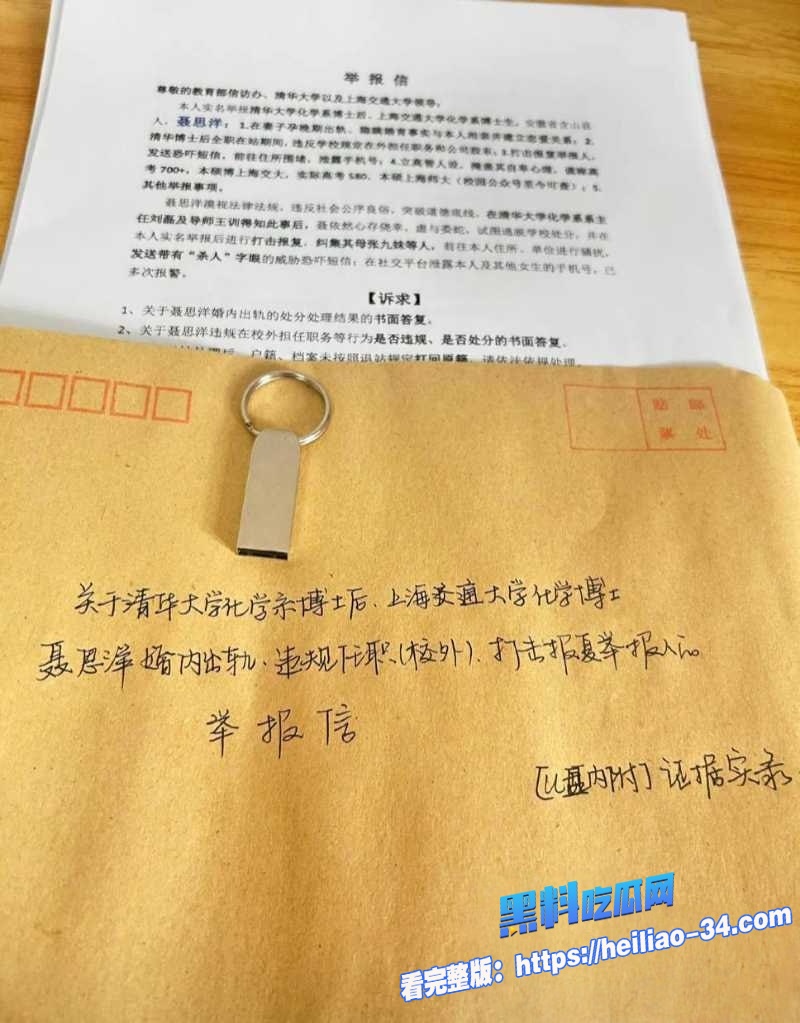 举报信
尊敬的教育部信访办、清华大学以及上海交通大学领导，
本人实名举报清华大学化学系博士后、上海交通大学化学系博士生，安徽省含山县
人，聂思洋：1.在妻子孕晚期出轨、隐瞒婚育事实与本人相亲并建立恋爱关系；2.
清华博士后全职在站期间，违反学校规定在外担任职务和公司股东；3.打击报复举报人，
发送恐吓短信，前往住所围堵，泄露手机号；4.立高智人设，掩盖其自卑心理，谎称高
考700+，本硕博上海交大，实际高考580，本硕上海师大（校园公众号至今可查）；5.
其他举报事项。
聂思洋漠视法律法规，违反社会公序良俗，突破道德底线，在清华大学化学系系主
任刘磊及导师王训得知此事后，聂依然心存侥幸，虚与委蛇，试图逃脱学校处分，并在
本人实名举报后进行打击报复，纠集其母张九妹等人，前往本人住所、单位进行骚扰，
发送带有“杀人”字眼的威胁恐吓短信；在社交平台泄露本人及其他女生的手机号，已
多次报警。
【诉求】
1、关于聂思洋婚内出轨的处分处理结果的书面答复。
2、关于聂思洋违规在校外担任职务等行为是否违规、是否处分的书面答复。
户籍、档案未按照退站规定打回原籍，请依法依规处理。
贴邮
票处
关于清华大学化学系博士后、上海交通大学化学博士
聂思洋婚内出轨、违规任职（校外）、打击报复举报人的
举报信
[U盘内附]证据实录
黑料吃瓜网
看完整版：https://heiliao-34.com